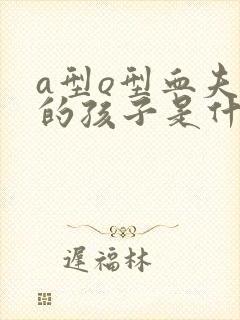 a型o型血夫
的孩子是什
遲福林